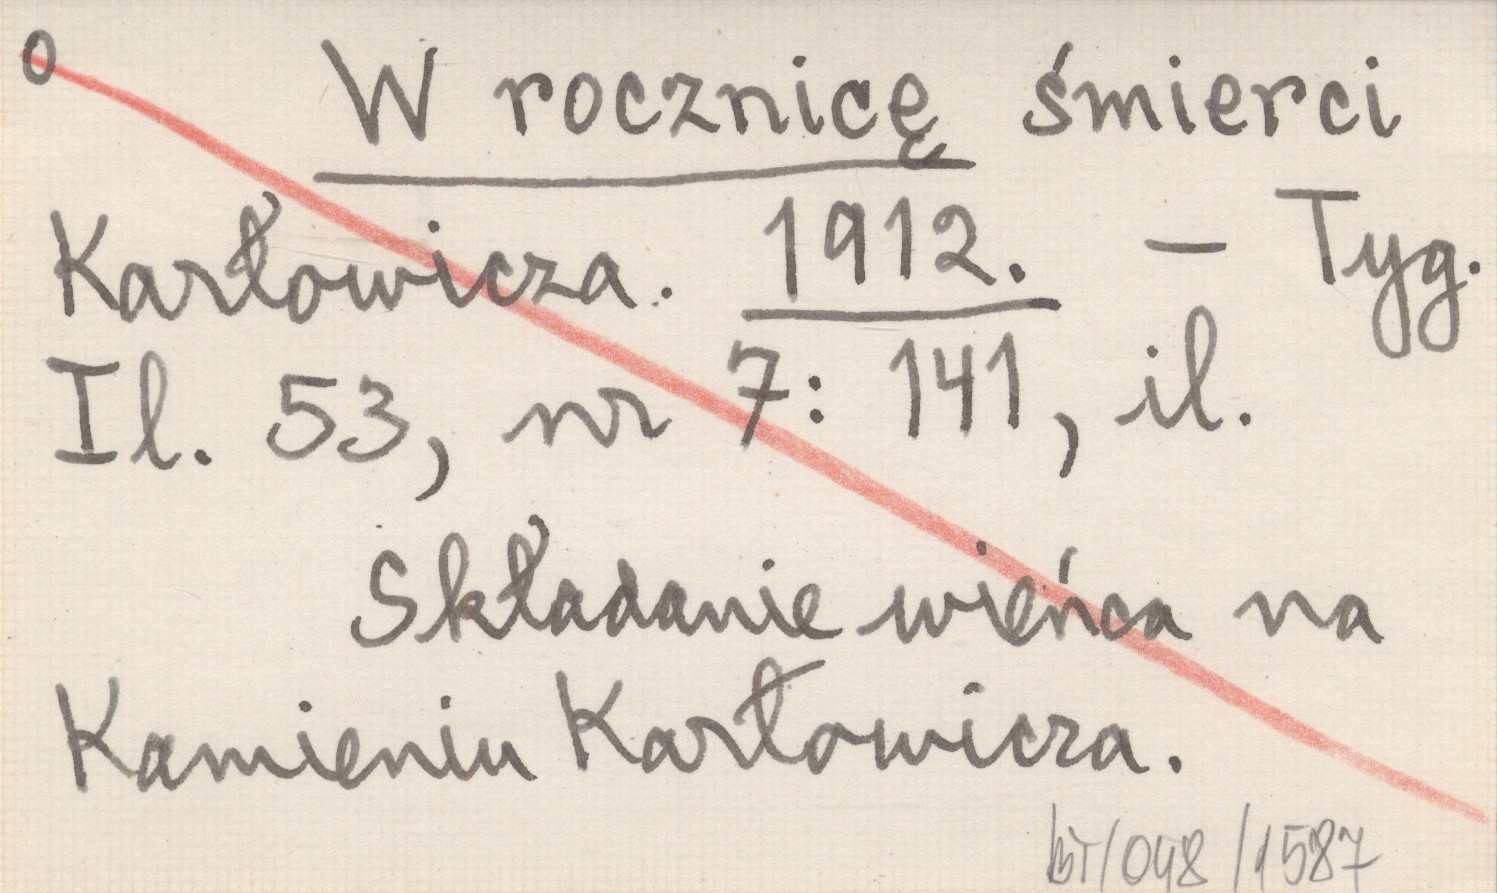 0 W rocznicę śmierci
Karłowicza. 1912. – Tyg.
Il. 53, nr 7: 141, il.
Składanie wieńca na
Kamieniu Karłowicza.
/048/1587